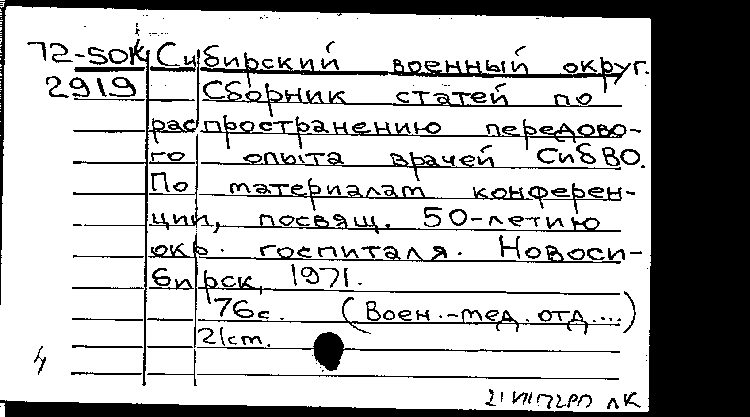 72-50К Сибирский военный округ.
2919 Сборник статей по
распространению передово-
го опыта врачей СибВО.
По материалам конферен-
ции, посвящ. 50-летию
окр. госпиталя. Новоси-
бирск, 1971.
76с. (Воен.-мед. отд....)
21cm.
4
ЛК